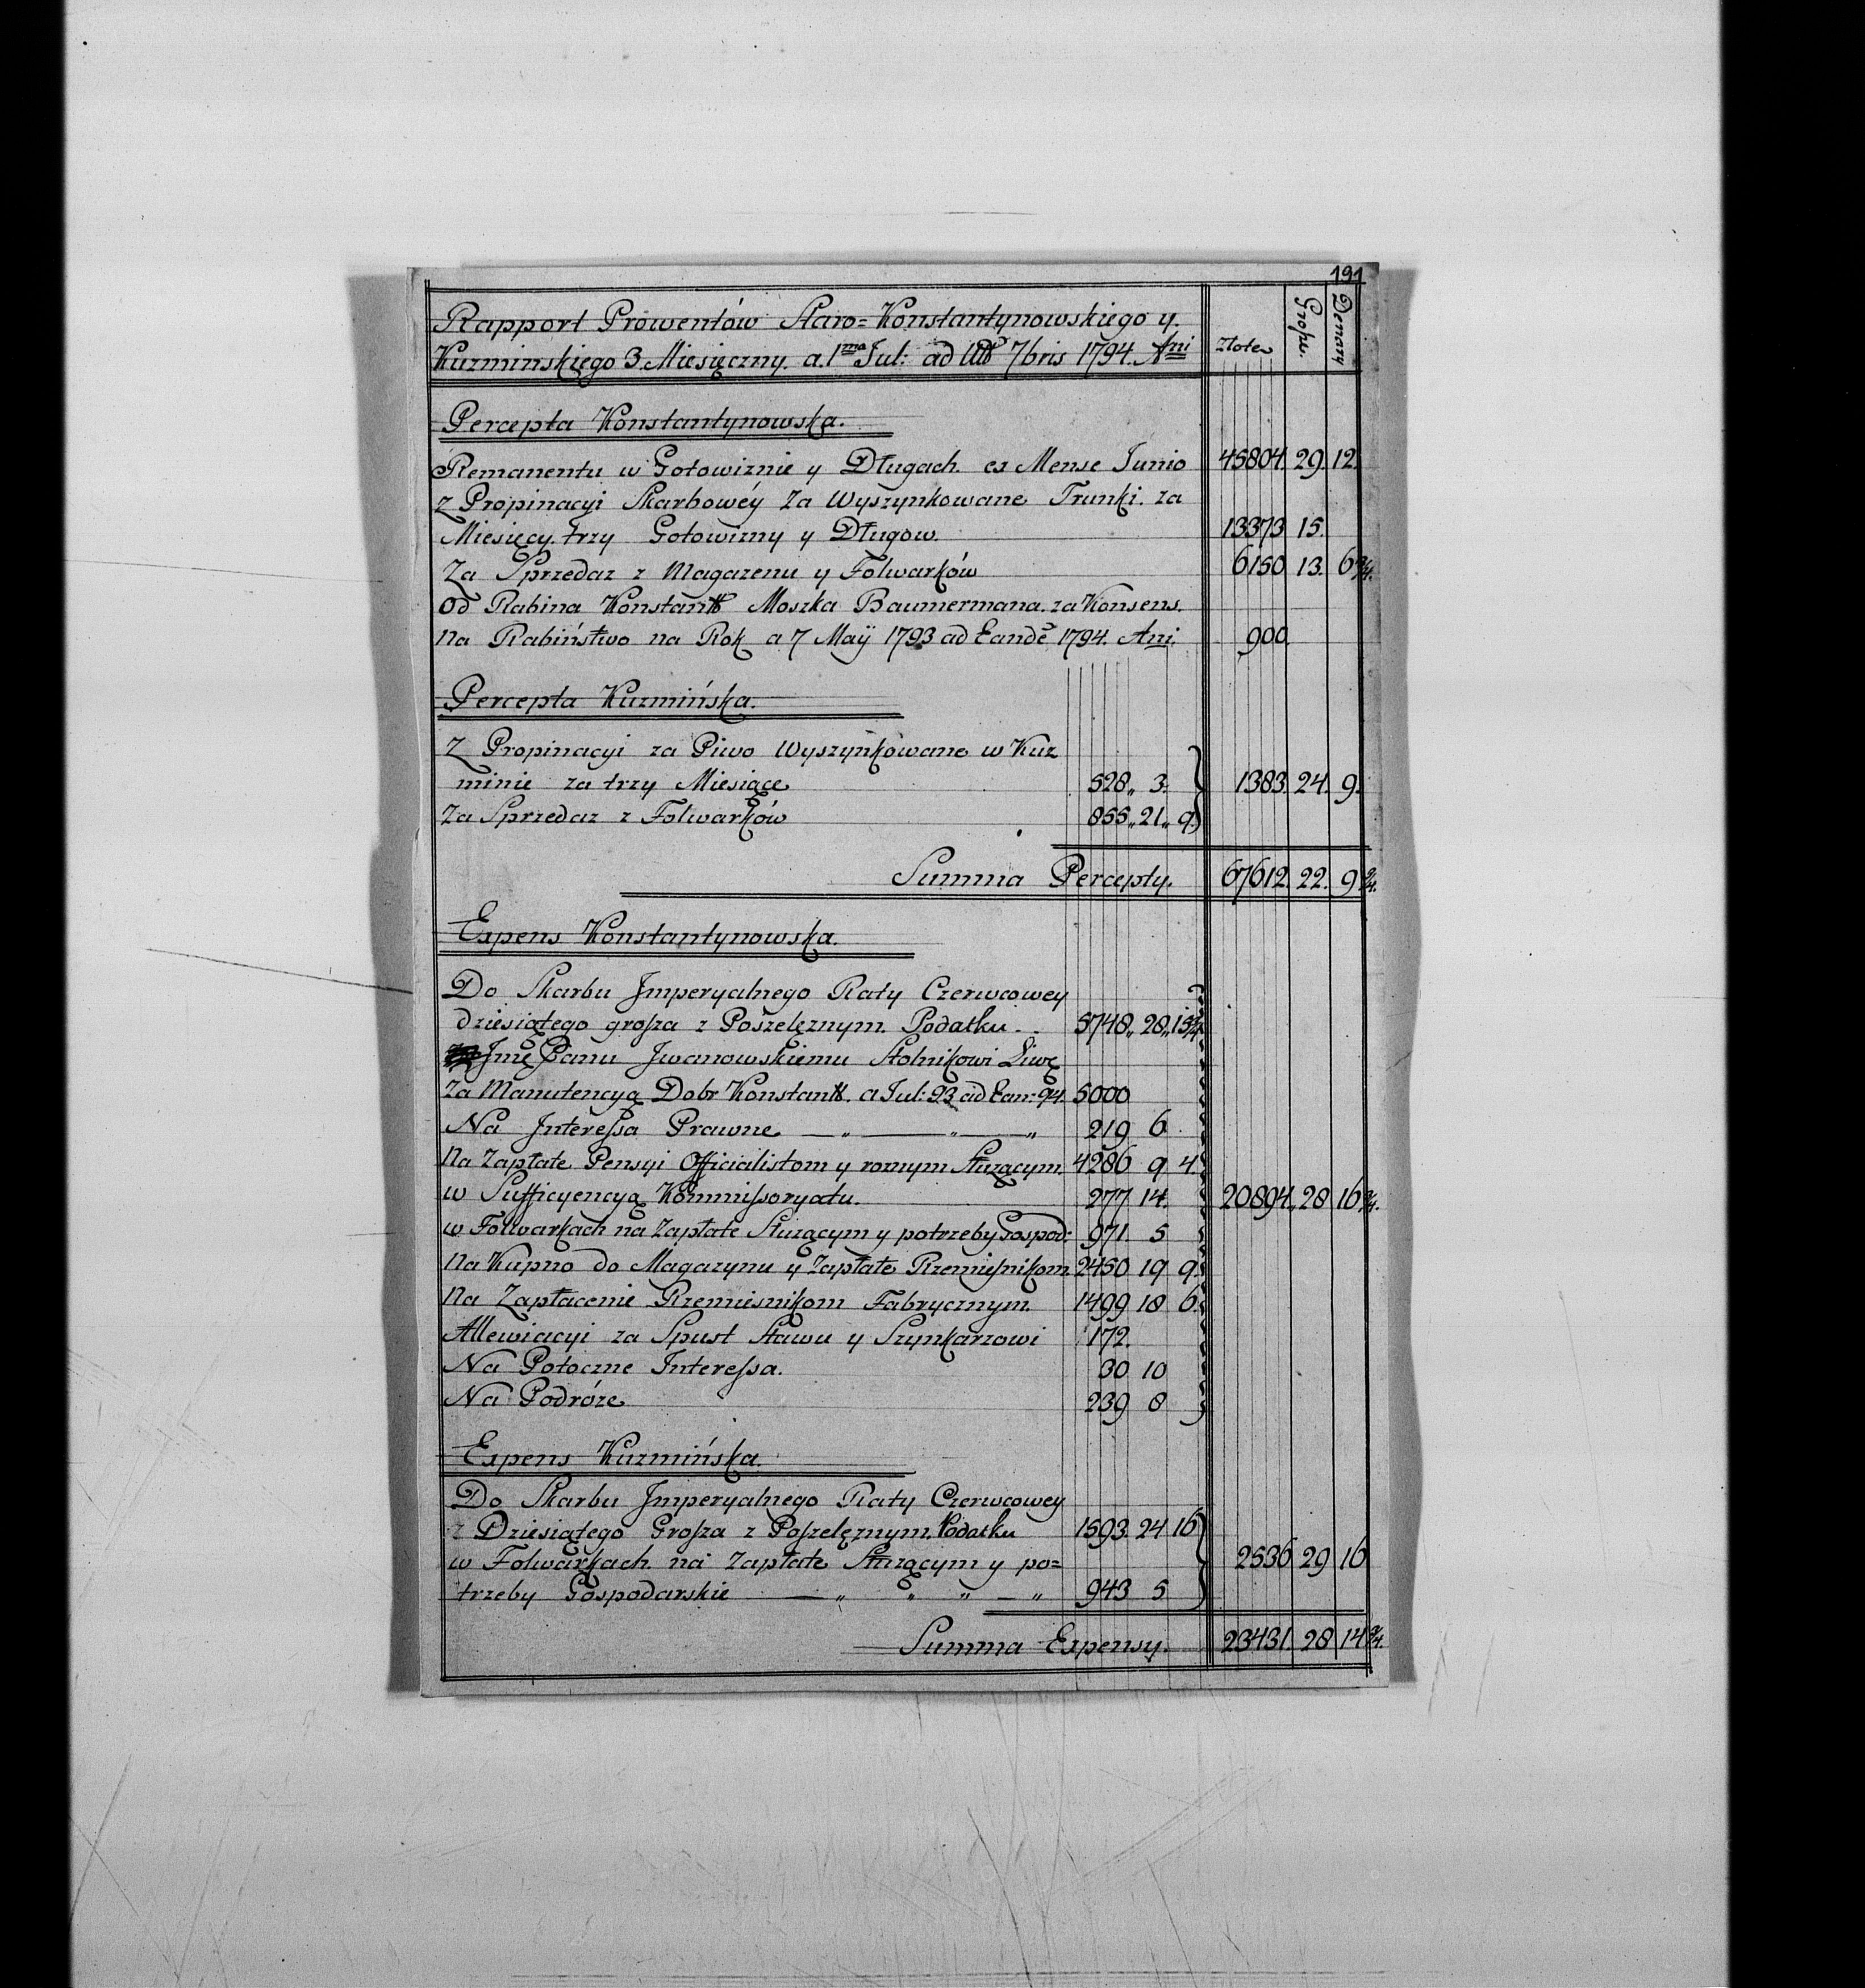 191
Rapport Prowentów Staro=Konstantynowskiego y.
Kuzminskiego 3 Miesięczny. a 1ma Jul: ad Ult 7bris 1794. Ani
Złote
Grosze.
Denary
Percepta Konstantynowska.
Remanentu w Gotowiznie y Długach ex Mense Junio 45804. 29. 12.
z Propinacyi Skarbowéy Za Wyszynkowane Trunki. za
Miesięcy. trzy Gotowizny y Długow. 13373 15.
Za Sprzedaz z Magazenu y Folwarków 6150 13. 6 3/4.
Od Rabina Konstantt Moszka Baumermana. za Konsens.
Na Rabiństwo na Rok a 7 Maÿ 1793 ad Eandē 1794. Ani. 900.
Percepta Kuzmińska.
Z Propinacyi za Piwo Wyszynkowane w Kuz
minie za trzy Miesiące 528„ 3. 1383. 24. 9.
Za Sprzedaz z Folwarków 855„ 21„ 9.
Summa Percepty. 67612. 22. 9 3/4.
Expens Konstantynowska.
Do Skarbu Jmperyalnego Raty Czerwcowey
dziesiątego grosza z Poszelęznym. Podatku. . 5748„ 28„ 15 3/4
Jmę Panu Jwanowskiemu Stolnikowi Liwę
Za Manutencyą Dobr Konstantt. a Jul: 93 ad Ean: 94. 5000
Na Jnteressa Prawne — „ — „ — „ 219 6.
Na Zapłate Pensyi Officialistom y roznym Służącym. 4286 9 4.
w Sufficyencyą Kommissoryatu. 277 14. 20894„ 28 16 3/4.
w Folwarkach na Zapłate Służącym y potrzeby Gospod: 971. 5
Na Kupno do Magazynu y Zapłate Rzemieśnikom 2450 19 9.
Na Zapłacenie Rzemiesnikom Fabrycznym. 1499 18 6.
Allewiacyi za Spust Stawu y Szynkarzowi 172.
Na Potoczne Interessa. 30 10
Na Podróze 239 8
Expens Kuzmińska.
Do Skarbu Jmperyalnego Raty Czerwcowey
z Dziesiątego Grosza z Poszelęznym. Podatku 1593. 24 16
w Folwarkach na Zapłate Służącym y po= 2536 29 16
trzeby Gospodarskie — „ „ „ — „ 943 5
Summa Expensy. 23431. 28 14 3/4.